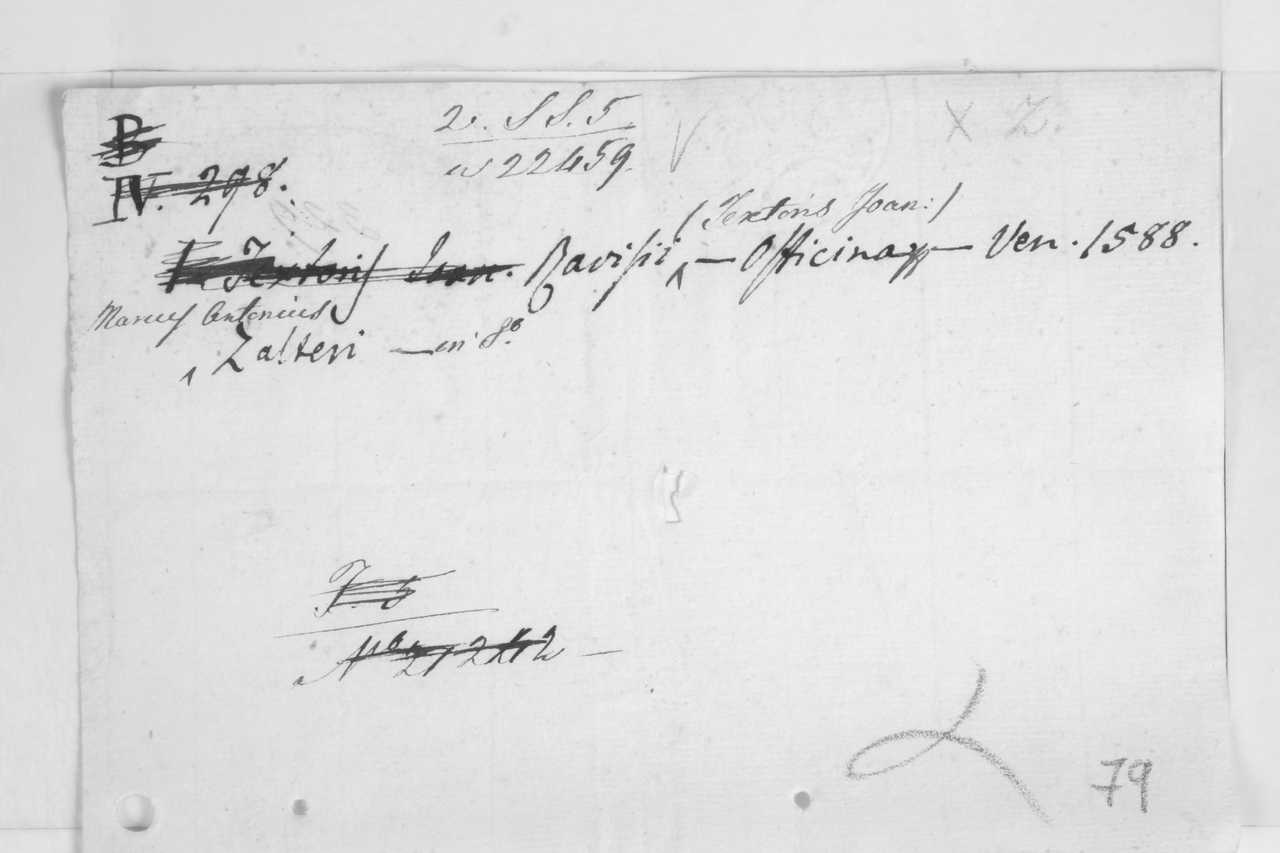 2. S S. 5
22459.
X Z.
B
IV. 298.
(Textoris Joan:)
Textoris Joan. Ravisii — Officinae — Ven. 1588.
Marcus Antonius
Zalteri — in 8o.
T. 5
No 21242 —
79